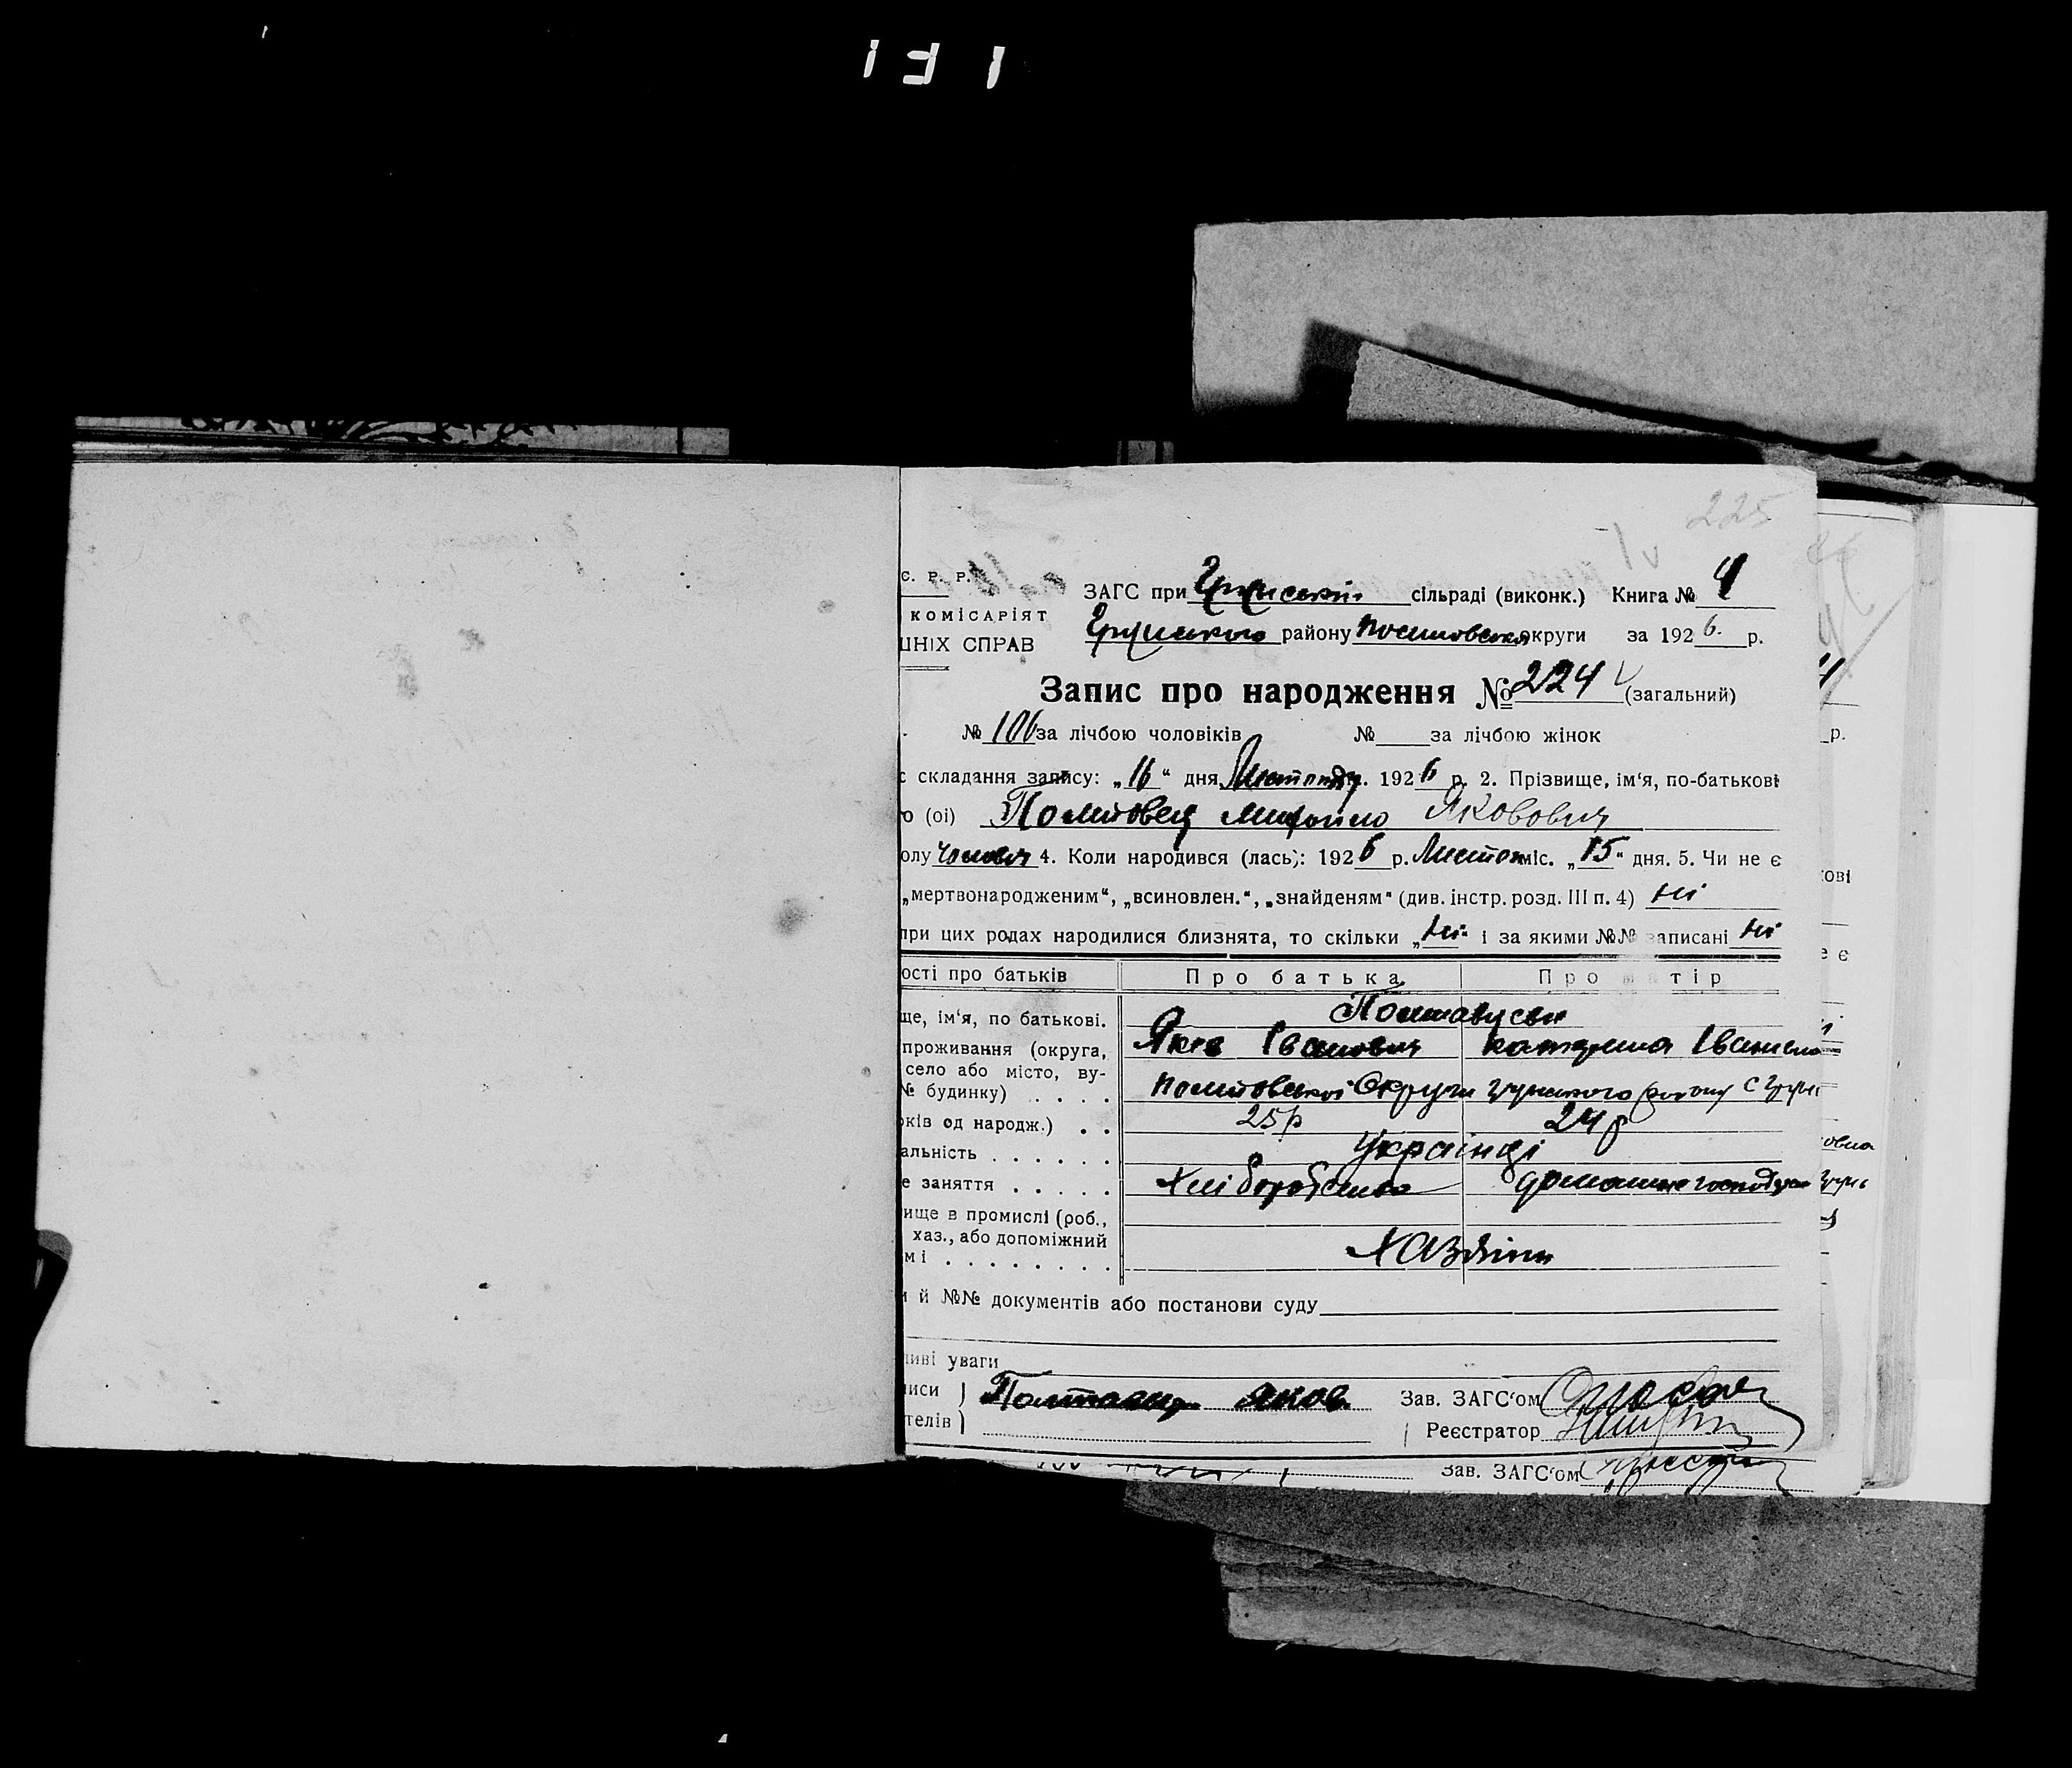 225
С. Р. Р.
ЗАГС при Грунській сільраді (виконк.) Книга № 4
КОМІСАРІЯТ
Грунського району Полтовської округи за 1926 р.
ШНІХ СПРАВ
Запис про народження № 224 (загальний)
№ 106 за лічбою чоловіків № за лічбою жінок
с складання запису: „16“ дня Листопаду 1926 р. 2. Прізвище, ім‘я, по-батькові
о (ої) Полтовец Михайло Якович
олу 4. Коли народився (лась): 1926 р. Листоп міс. „15“ дня. 5. Чи не є
„мертвонародженим“, „всиновлен.“, „знайденям“ (див. інстр. розд. III п. 4) ні
при цих родах народилися близнята, то скільки „ні“ і за якими №№ записані ні
ості про батьків Про батька Про матір
Полтавуси
ще, ім‘я, по батькові. Яків Іванович Катерина Іванівна
проживання (округа,
село або місто, ву-
№ будинку) . . . . Полтовської Округи Грунського району с Грунь
ків од народж.) . . 25р 24р
альність . . . . . . Українці
е заняття . . . . . Хліборобство домашнє господар
ище в промислі (роб.,
хаз., або допоміжний
мі . . . . . . . . Хазяїни
и й №№ документів або постанови суду
иві уваги
иси Полтавец Яков Зав. ЗАГС‘ом
телів Реєстратор
Зав. ЗАГС‘ом